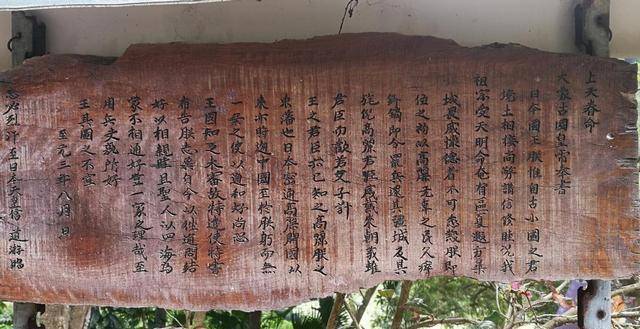 上天眷命
大蒙古國皇帝奉書
日本國王朕惟自古小國之君
境土相接尚務講信修睦況我
祖宗受天明命奄有區夏遐方異
域畏威懷德者不可悉數朕即
位之初以高麗无辜之民久瘁
鋒鏑即令罷兵還其疆域反其
旄倪高麗君臣感戴來朝義雖
君臣而歡若父子計
王之君臣亦已知之高麗朕之
東藩也日本密邇高麗開國以
來亦時通中國至於朕躬而無
一乗之使以通和好尚恐
王國知之未審故特遣使持書
布告朕志冀自今以往通問結
好以相親睦且聖人以四海為
家不相通好豈一家之理哉至
用兵夫孰所好
王其圖之不宣
至元三年八月日
忽必烈汗至日本天皇信